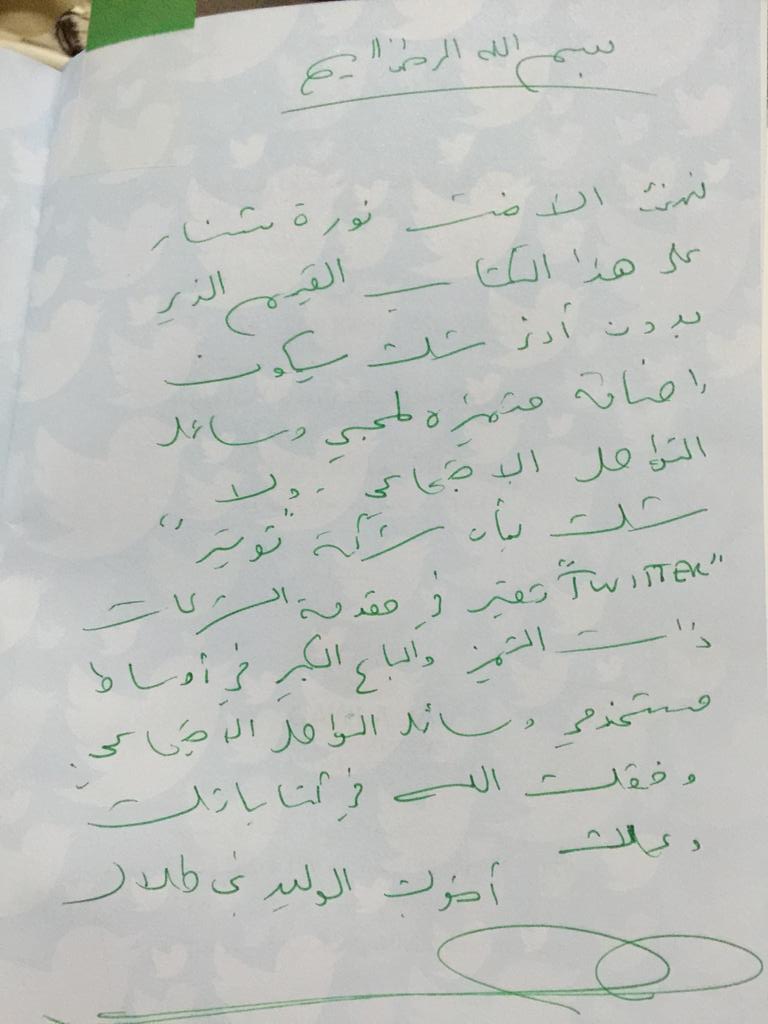 بسم الله الرحمن الرحيم
نهنئ الاخت نورة شنار
على هذا الكتاب القيم الذي
بدون أدنى شك سيكون
إضافة متميزه لمحبي وسائل
التواصل الاجتماعي .. ولا
شك بأن شركة "تويتر"
"TWITTER" تعتبر في مقدمة الشركات
ذات التميز والباع الكبير في أوساط
مستخدمي وسائل التواصل الاجتماعي
وفقك الله في كتاباتك
وعملك
أخوك الوليد بن طلال